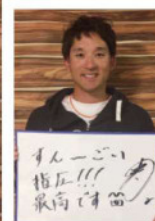 すんーごい
指圧!!!
最高です